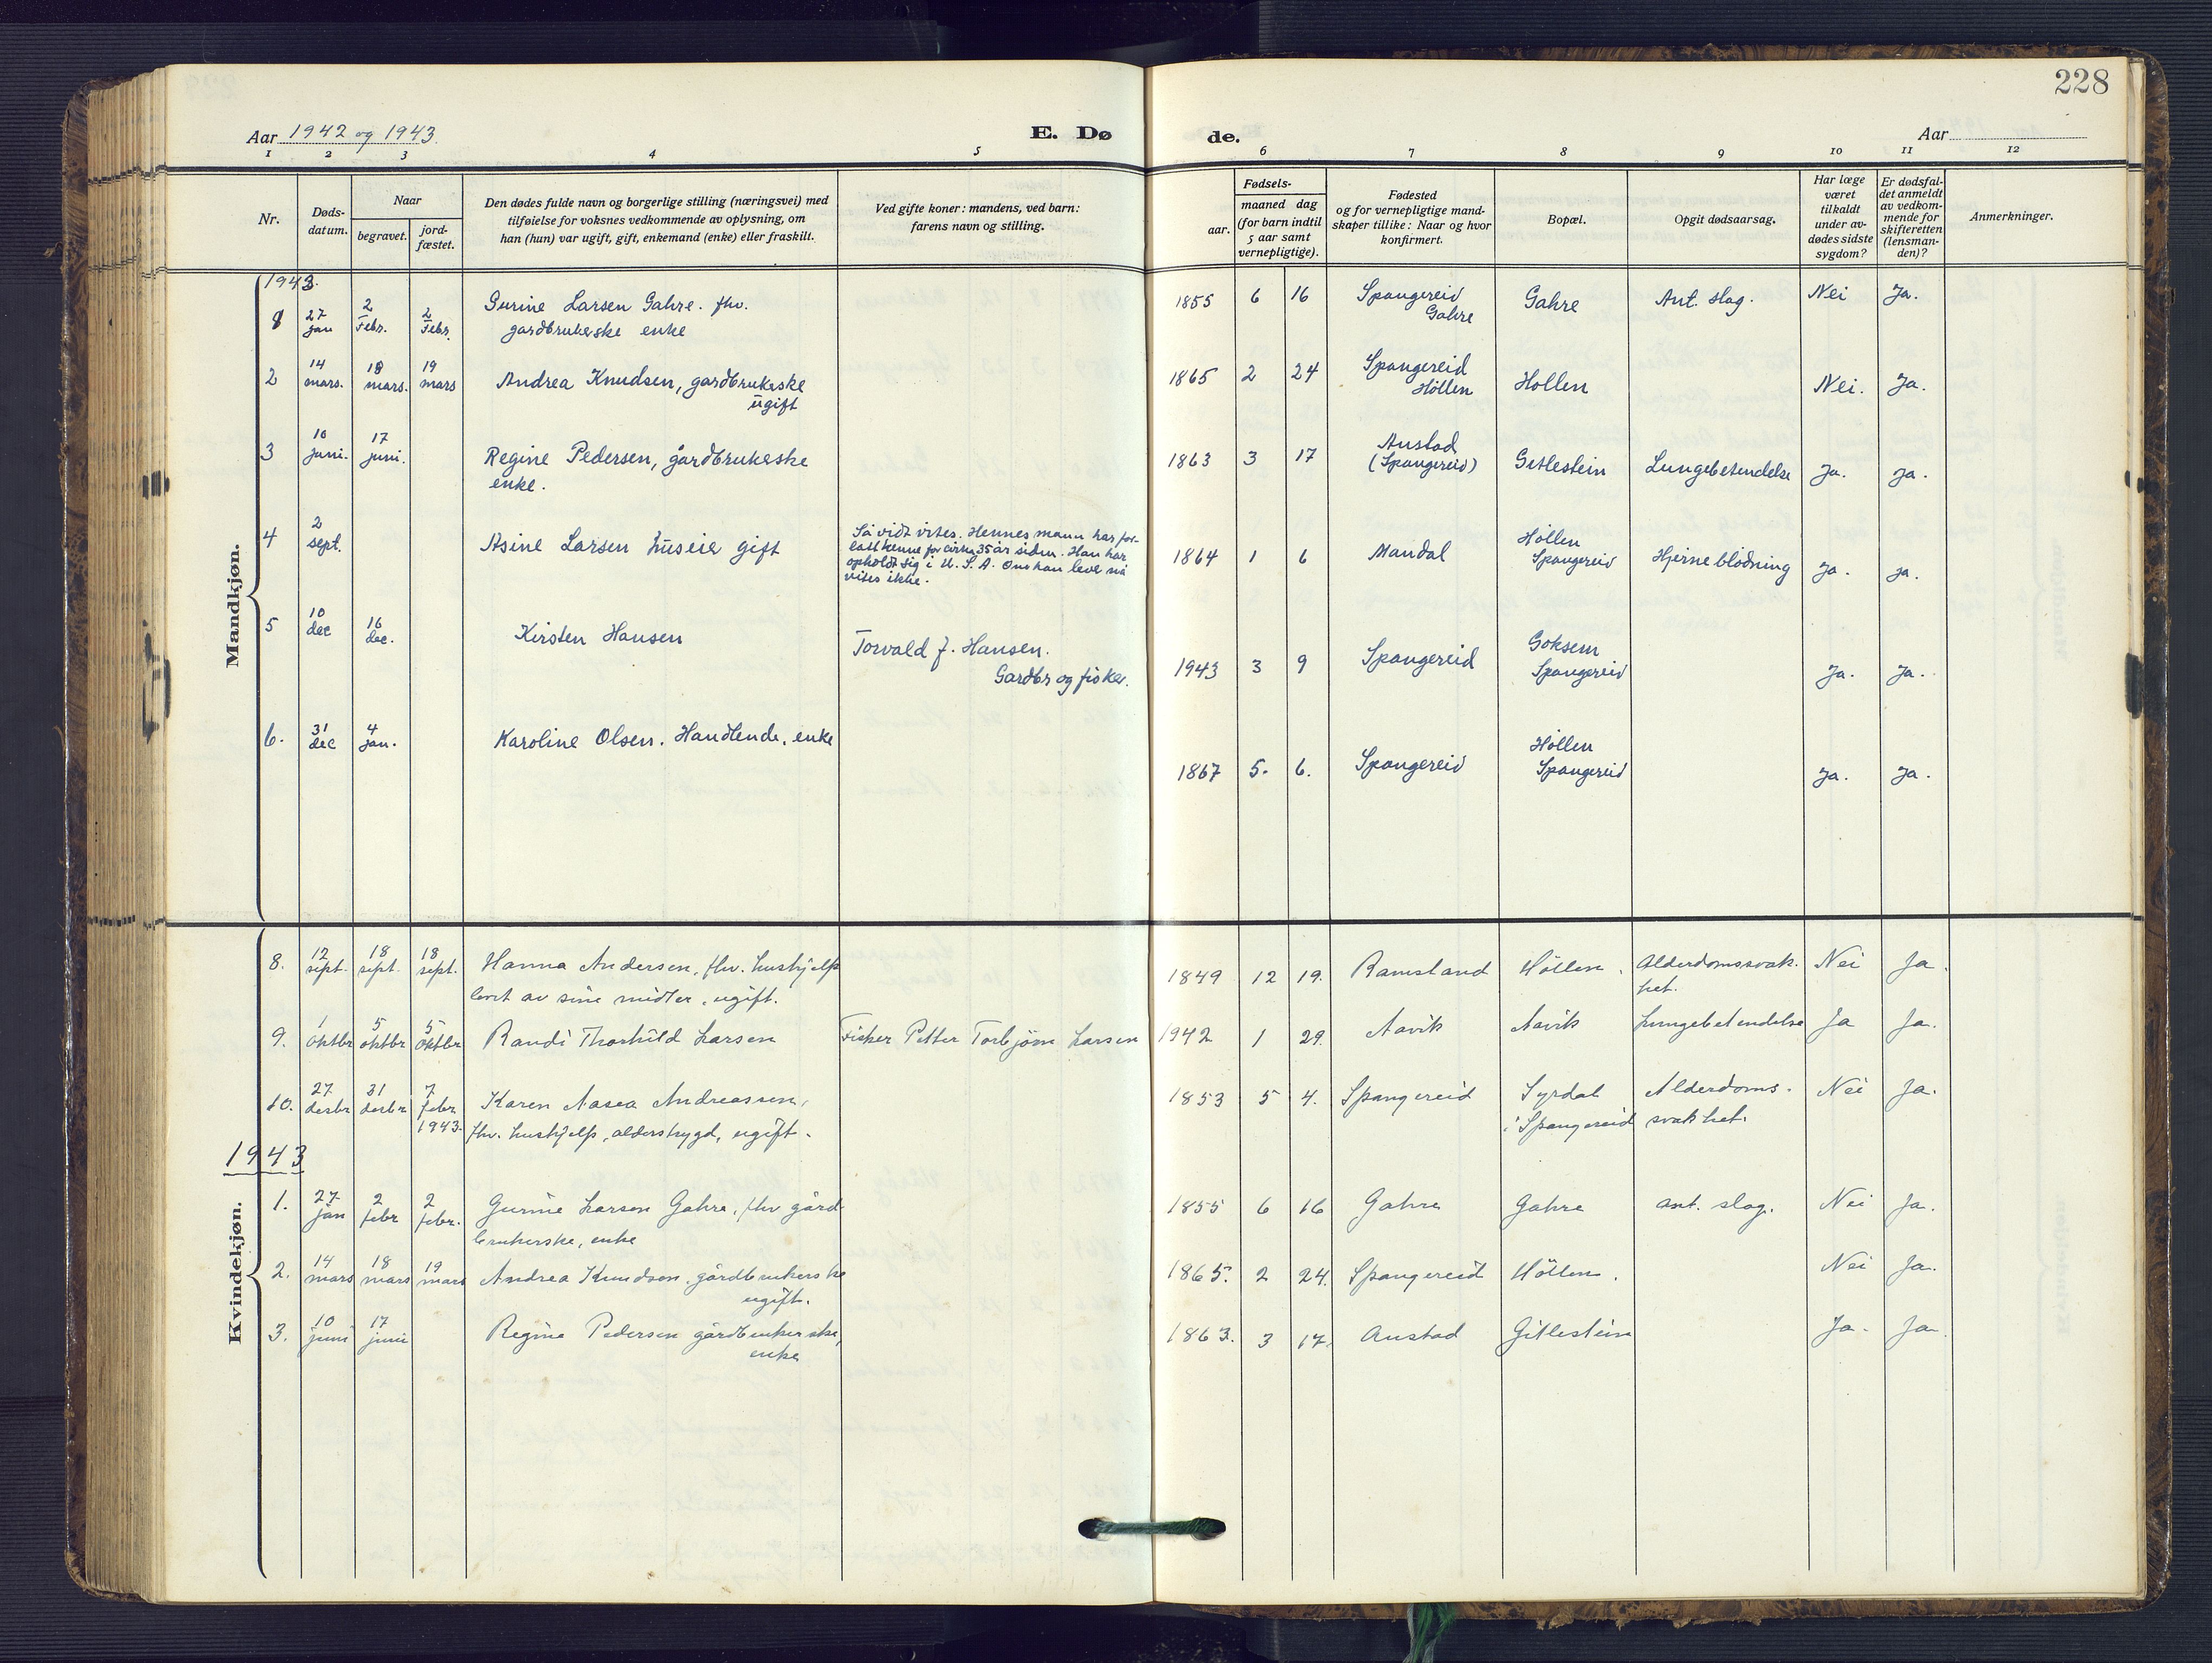 228
Aar 1942 og 1943.
E. Dø
de.
Aar
1 2 3 4 5 6 7 8 9 10 11 12
Nr.
Døds-
datum.
Naar
begravet.
jord-
fæstet.
Den dødes fulde navn og borgerlige stilling (næringsvei) med
tilføielse for voksnes vedkommende av oplysning, om
han (hun) var ugift, gift, enkemand (enke) eller fraskilt.
Ved gifte koner: mandens, ved barn:
farens navn og stilling.
Fødsels-
aar.
maaned dag
(for barn indtil
5 aar samt
vernepligtige).
Fødested
og for vernepligtige mand-
skaper tillike: Naar og hvor
konfirmert.
Bopæl.
Opgit dødsaarsag.
Har læge
været
tilkaldt
under av-
dødes sidste
sygdom?
Er dødsfal-
det anmeldt
av vedkom-
mende for
skifteretten
(lensman-
den)?
Anmerkninger.
Mandkjøn.
1943.
27 jan 2 Febr. 2 Febr. Gurine Larsen Gahre. fhv.
gardbrukeske enke
1855 6 16 Spangereid
Gahre
Gahre Ant. slag. Nei Ja.
2 14 mars. 18 mars. 19 mars Andrea Knudsen, gardbrukeske
ugift
1865 2 24 Spangereid
Höllen
Hollen Nei. Ja.
3 10 juni. 17 juni. Regine Pedersen, gardbrukeske
enke.
1863 3 17 Austad
(Spangereid)
Gitlestein Lungebetendelse Ja. Ja.
4 2 sept. Asine Larsen huseier gift
Så vidt vites. Hennes mann har for-
latt henne for cirka 35 år siden. Han har
opholdt sig i U.S.A. Om han lever nå
vites ikke.
1864 1 6 Mandal Höllen
Spangereid
Hjerneblödning Ja. Ja.
5 10 dec 16 dec. Kirsten Hansen Torvald J. Hansen.
Gardbr og fisker.
1943 3 9 Spangereid Goksem
Spangereid
Ja. Ja.
6. 31 dec 4 jan. Karoline Olsen. Handlende. enke
1867 5. 6. Spangereid Höllen
Spangereid
Ja. Ja.
Kvindekjøn.
8. 12 sept. 18 sept. 18 sept. Hanna Andersen, fhv. hushjelp
levet av sine midler, ugift.
1849 12 19. Ramsland Höllen. Alderdomssvak-
het.
Nei Ja.
9. 1 oktbr 5 oktbr 5 oktbr Randi Thorhild Larsen Fisker Petter Torbjörn Larsen 1942 1 29. Aavik Aavik Lungebetendelse Ja Ja.
10. 27 desbr 31 desbr 7 febr 1943. Karen Aasea Andreassen,
fhv. hushjelp, alderstrygd, ugift.
1853 5 4. Spangereid Syrdal
i Spangereid
Alderdoms-
svakhet.
Nei Ja.
1943
1. 27 jan 2 febr 2 febr. Gurine Larsen Gahre, fhv gård-
brukerske, enke
1855 6 16 Gahre Gahre ant. slag. Nei Ja.
2. 14 mars 18 mars 19 mars Andrea Knudsen, gårdbrukerske
ugift.
1865. 2 24. Spangereid Höllen. Nei Ja.
3. 10 juni 17 juni Regine Pedersen gårdbrukerske,
enke
1863. 3 17. Austad Gitlestein Ja. Ja.